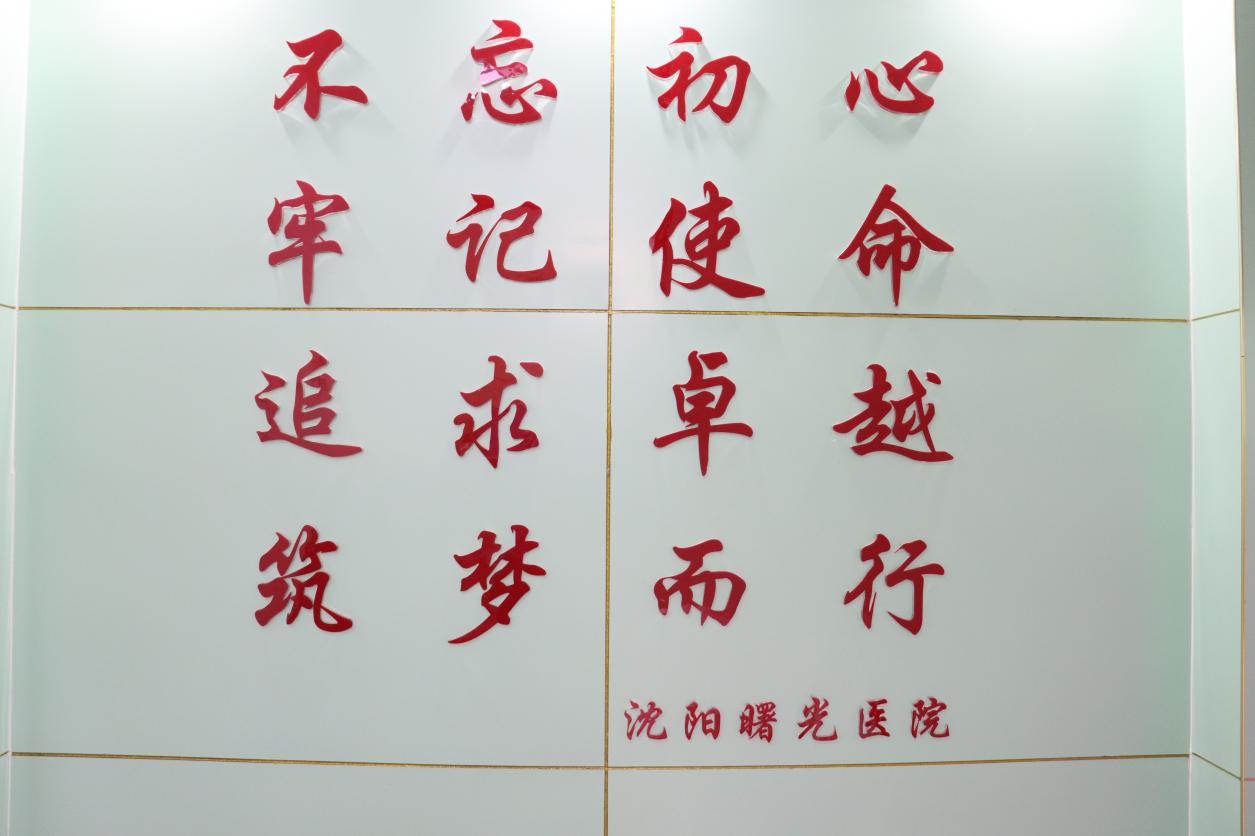 不忘初心
牢记使命
追求卓越
筑梦而行
沈阳曙光医院